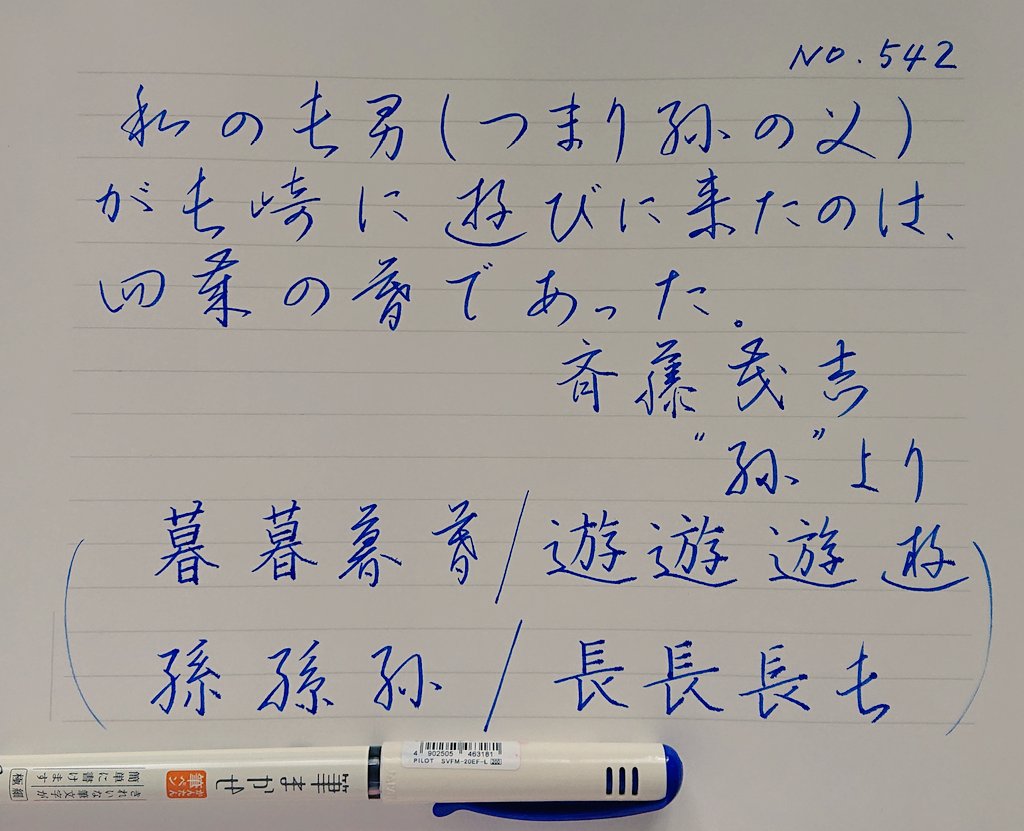 NO.542
私の長男(つまり孫の父)
が長崎に遊びに来たのは、
四年の暮であった。
斉藤茂吉
"孫"より
暮暮暮暮/遊遊遊遊
孫孫孫/長長長長
4 902505 463181
PILOT SVFM-20EF-L
筆まかせ
かんたん筆ペン
きれいな筆文字が
簡単に書けます
極細